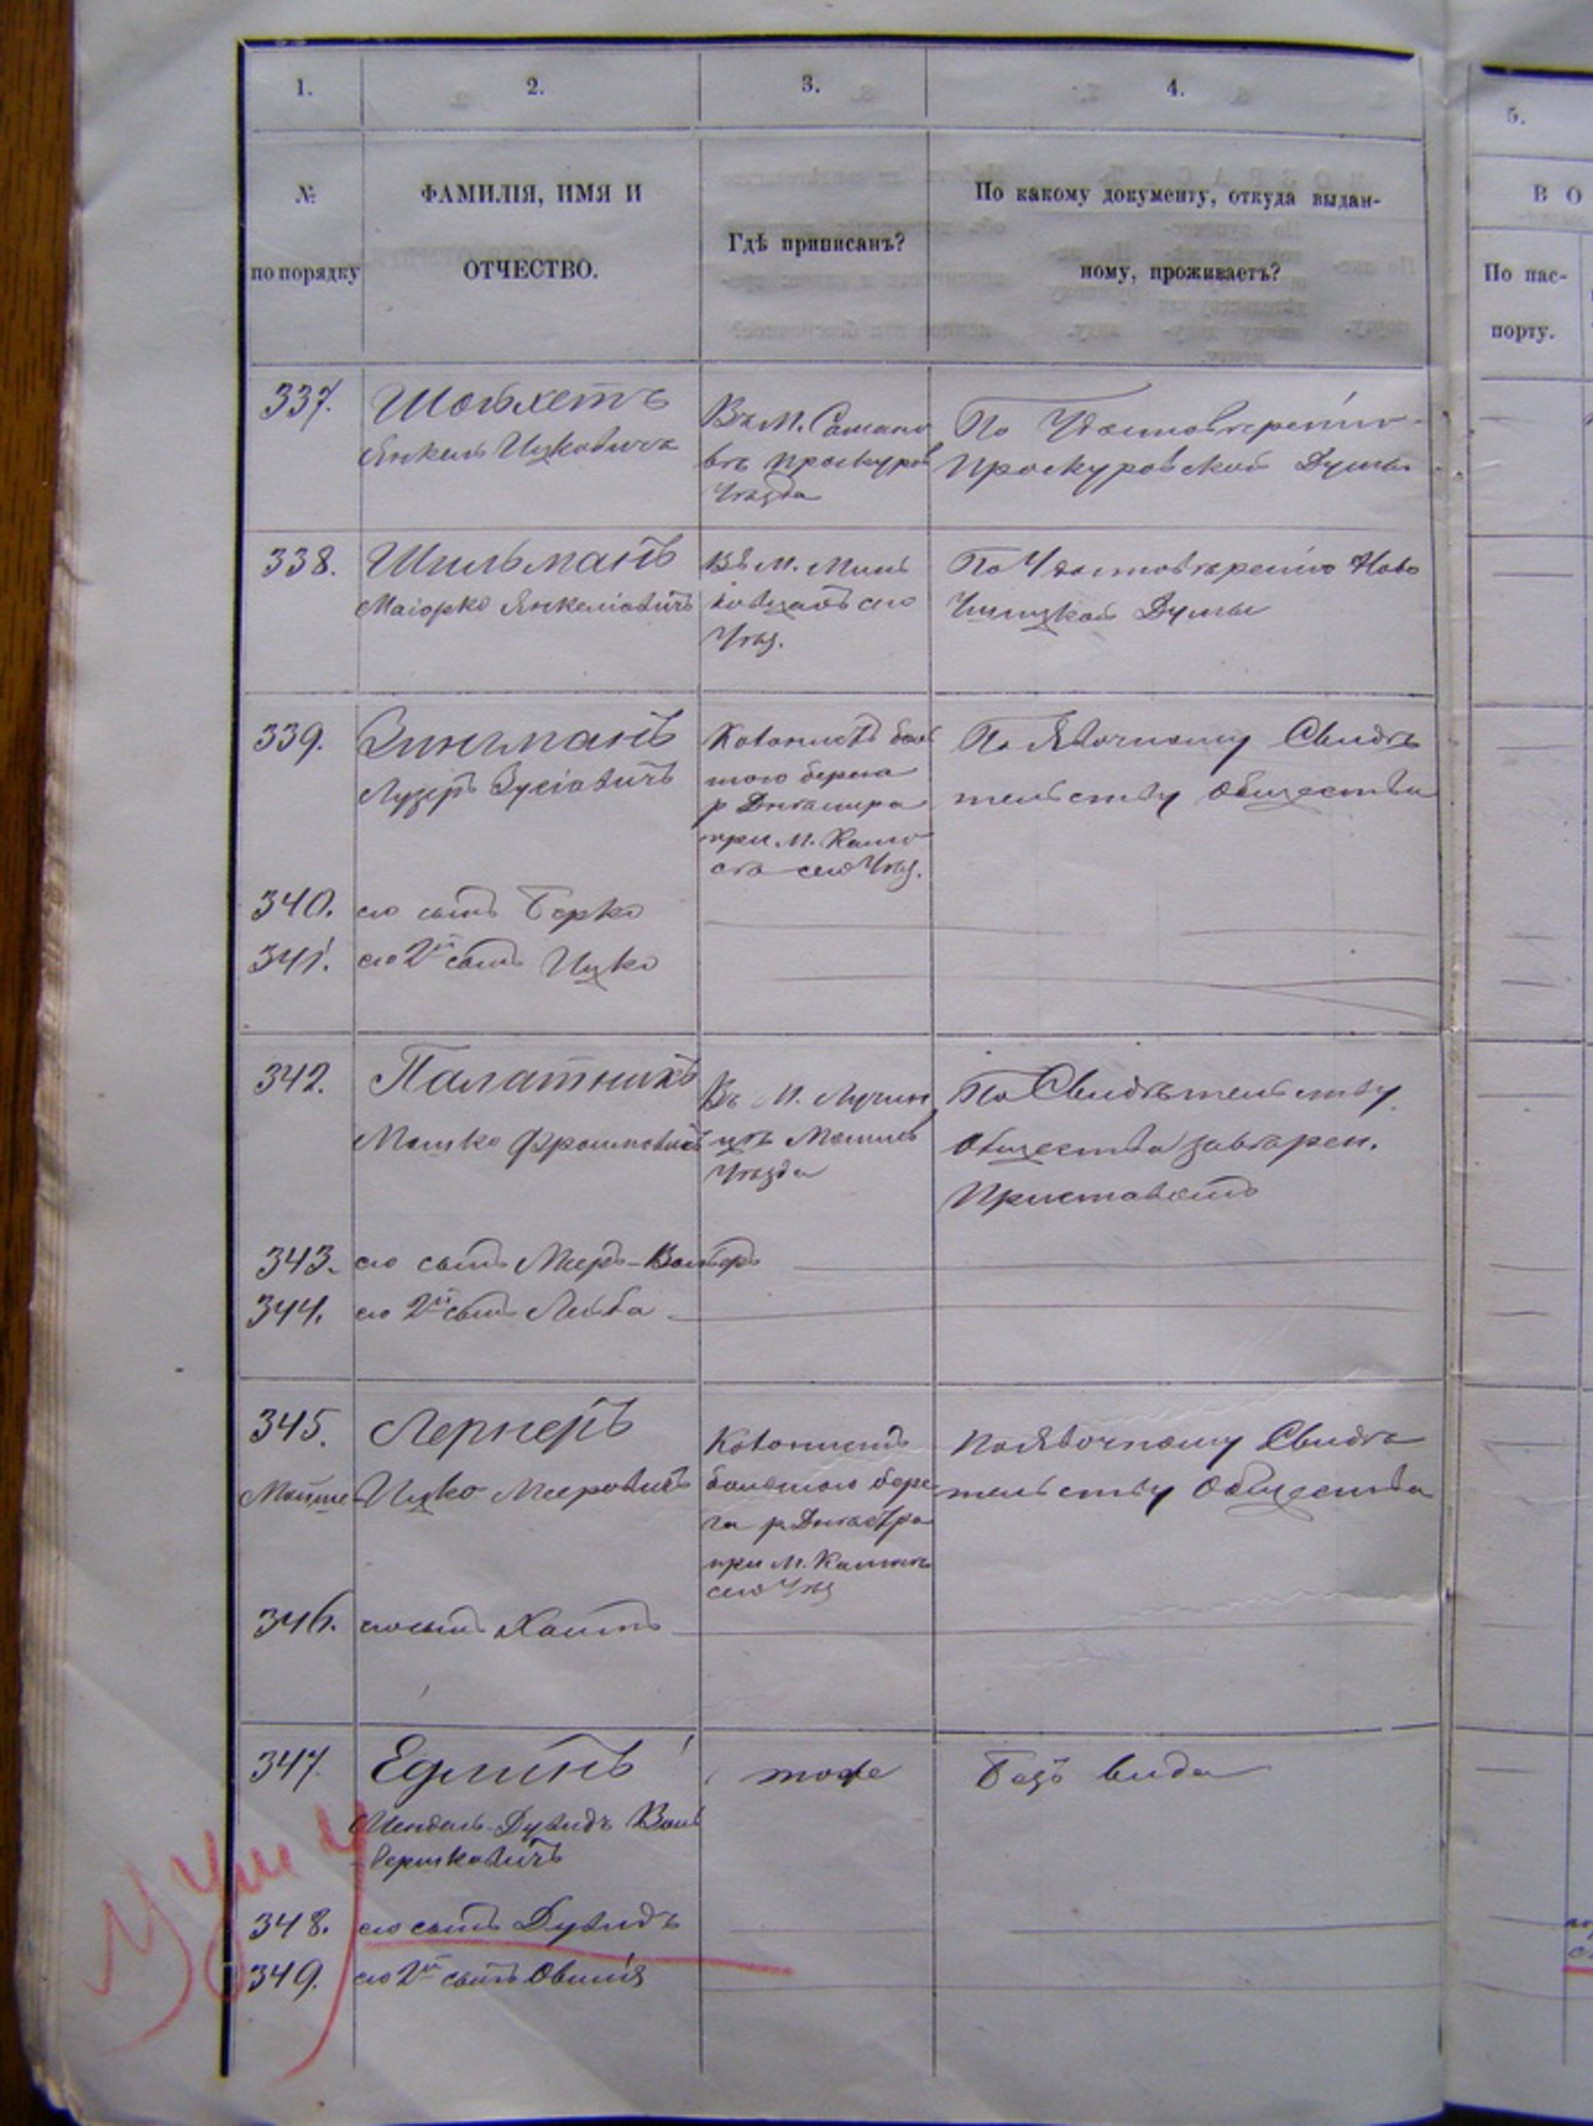 1.
2.
3.
4.
5.
№
по порядку
ФАМИЛІЯ, ИМЯ И
ОТЧЕСТВО.
Гдѣ приписанъ?
По какому документу, откуда выдан-
ному, проживаетъ?
В О
По пас-
порту.
337.
Шойхетъ
Янкель Ицковичъ
Въ М.
вѣ Проскуров
Уѣзда
По Удостовѣренію
Проскуровской Думы
338.
Шильманъ
Маіорко Янкеліовичъ
Въ М. Минь
ковцахъ сего
Уѣз.
По Удостовѣренію Ново
Ушицкой Думы
339.
Зингманъ
Лузеръ Зусіовичъ
Колонистъ
берега
р
при М.
сего Уѣз.
По Явочному Свидѣ
тельству Общества
340.
его сынъ Берко
341.
его 2й сынъ Ицко
342.
Палатникъ
Мошко Фроимовичъ
Въ М. Лучин
цѣ Могилев
Уѣзда
По Свидѣтельству
Общества завѣрен.
Приставомъ
343.
его сынъ Мееръ-Вольберъ
344.
его 2й сынъ Лейба
345.
Лернеръ
Мойше Ицко Мееровичъ
Колонистъ
бере
га р Днѣстра
при М.
сего Уѣз
По Явочному Свидѣ
тельству Общества
346.
его сынъ Хаимъ
347.
Едлинъ
Мендель-Дувидъ Воль
Гершковичъ
тоже
Безъ вида
348.
его сынъ Дувидъ
349.
его 2й сынъ Овшія